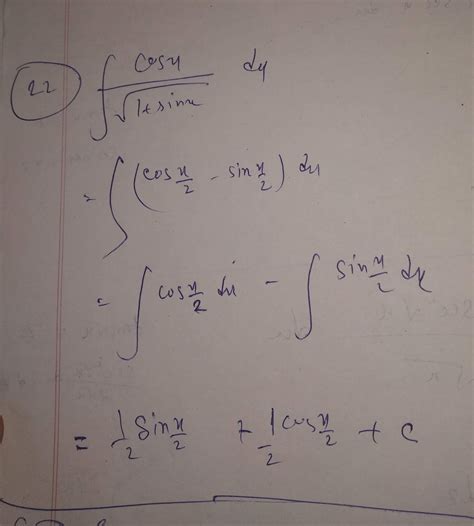 22 ∫ cosx / √1+sinx dx
= ∫ (cos x/2 - sin x/2) dx
= ∫ cos x/2 dx - ∫ sin x/2 dx
= 1/2 sin x/2 + 1/2 cos x/2 + c